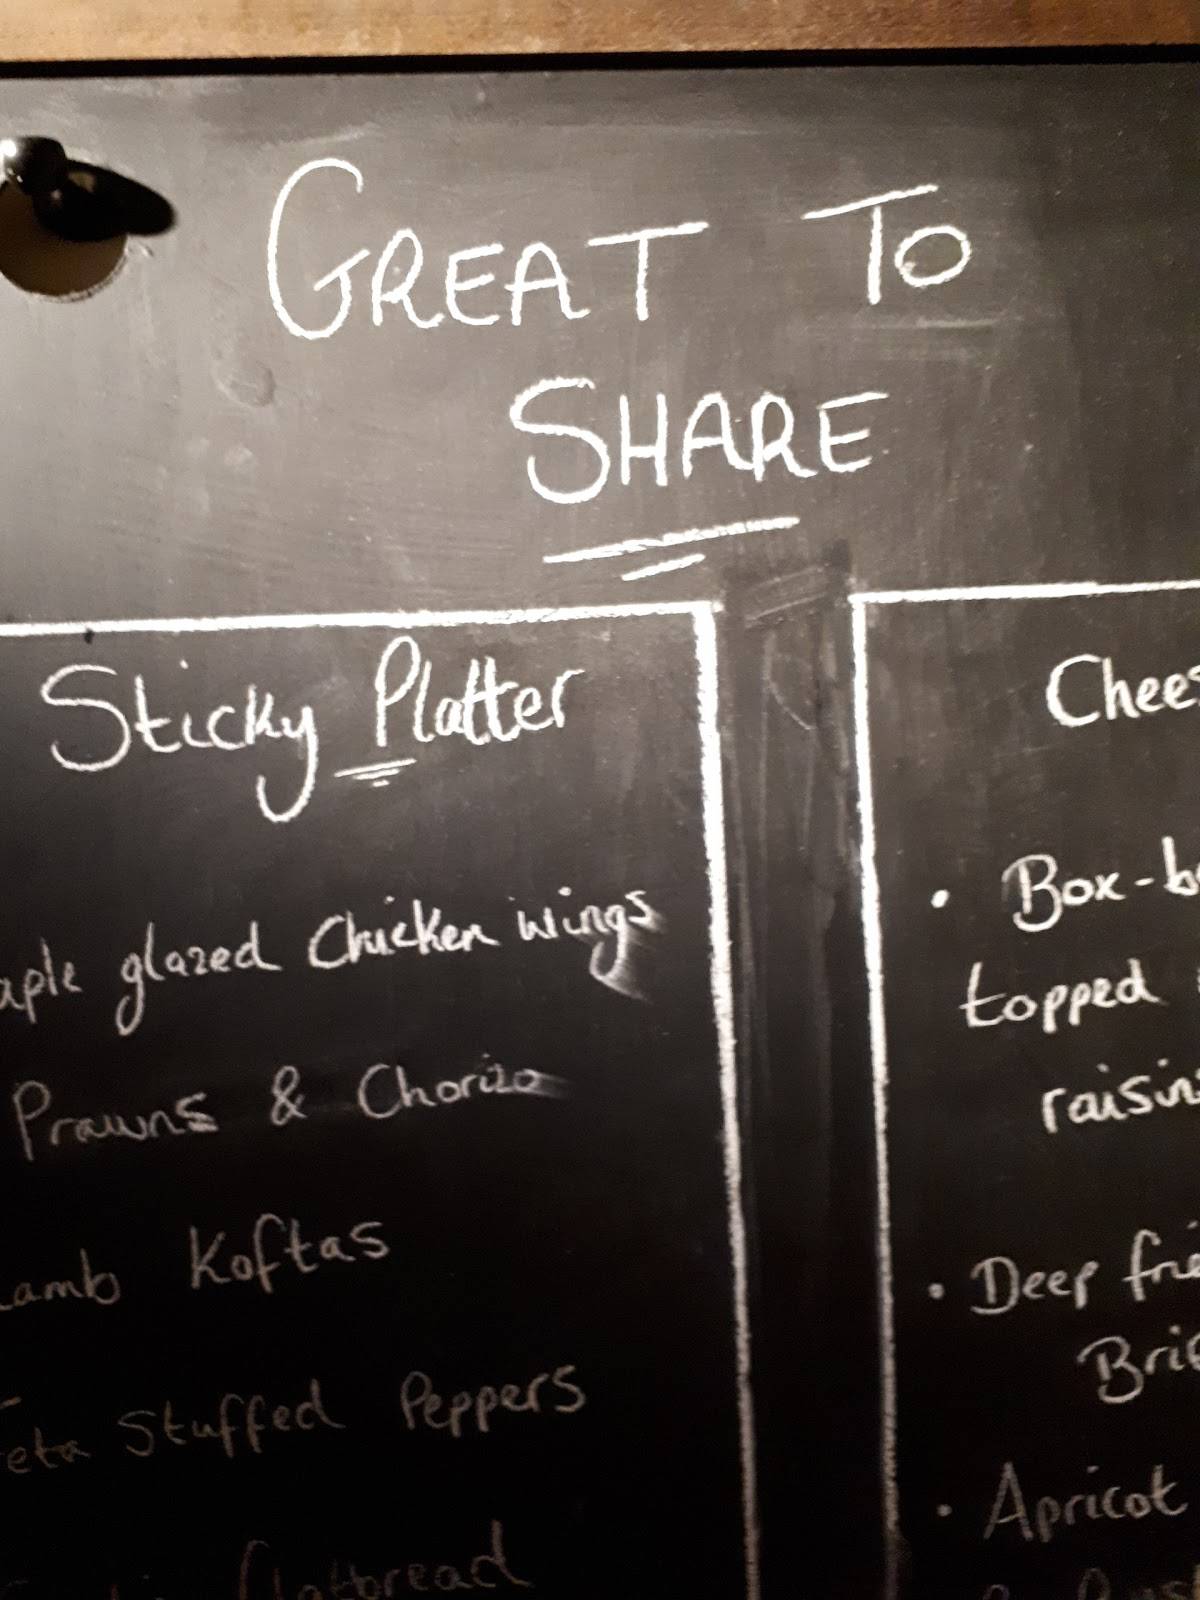 GREAT TO
SHARE
Sticky Platter
aple glazed Chicken wings
Prawns & Chorizo
Lamb Koftas
Feta Stuffed Peppers
flatbread
Chees
• Box-b
topped
raisins
• Deep frie
Brie
• Apricot